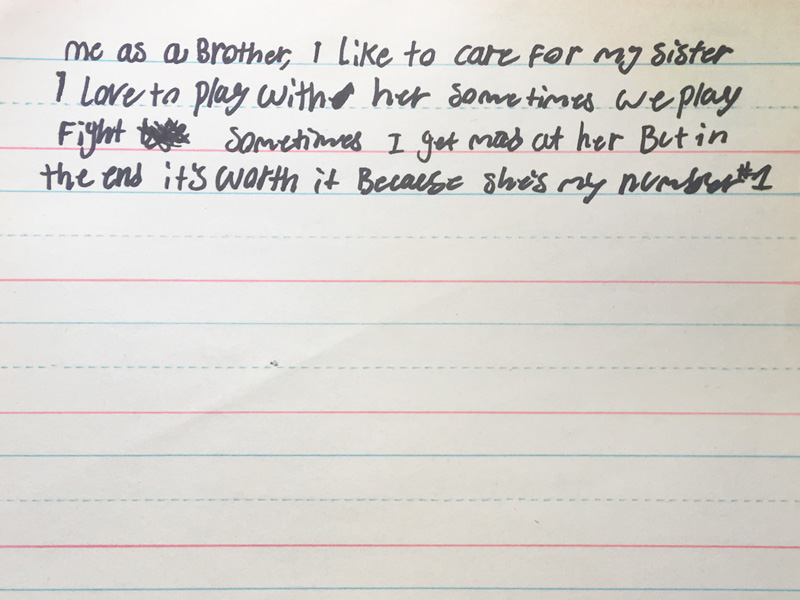 me as a Brother, I like to care for my sister
I Love to play with her sometimes we play
Fight sometimes I get mad at her But in
the end it's worth it Because she's my number #1